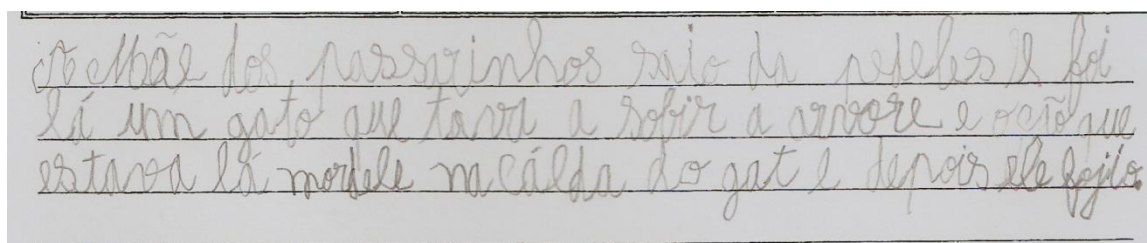 A Mãe dos passarinhos saio da e foi
lá um gato que tava a sobir a arvore e o cão que
estava lá mordele na cálda do gat e depois ele fojio.